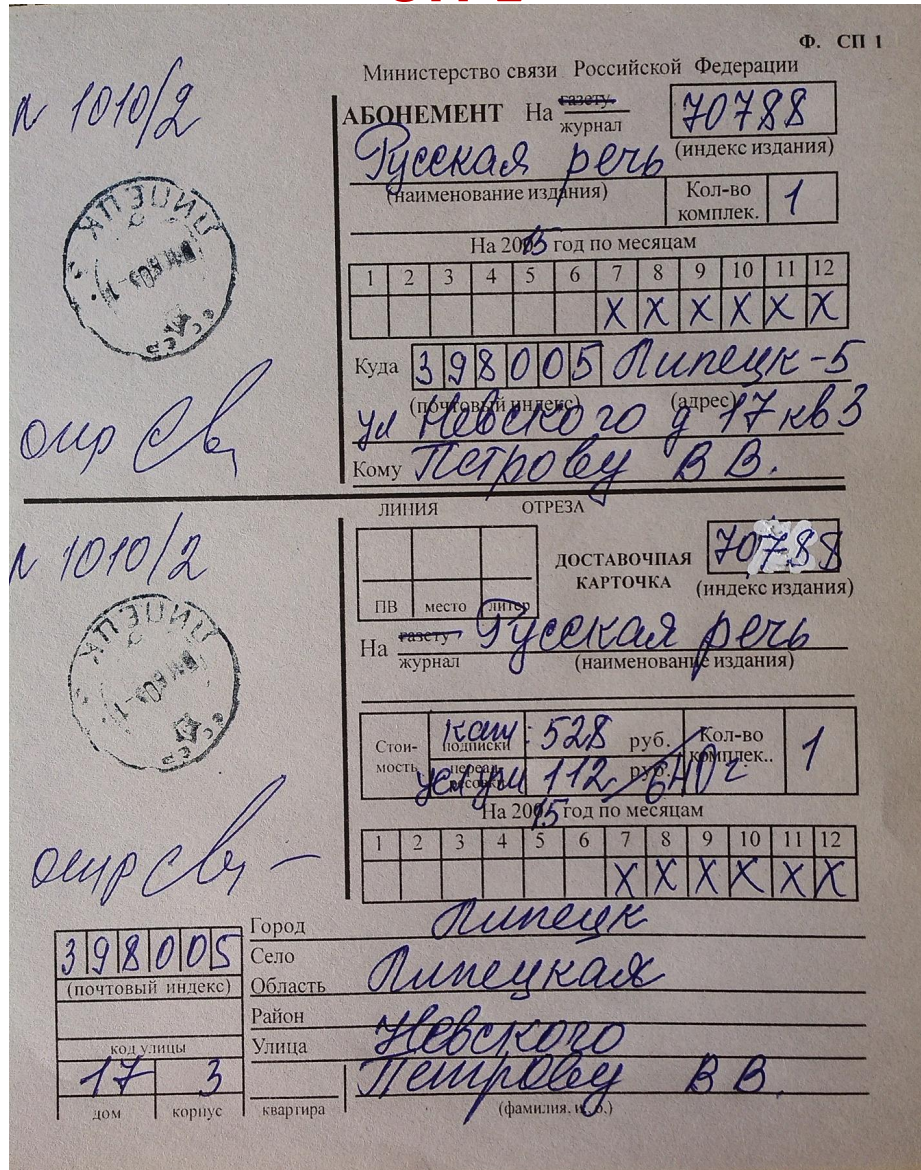 Ф. СП 1
Министерство связи Российской Федерации
N 1010/2
АБОНЕМЕНТ На газету журнал 70788
(индекс издания)
Русская речь
(наименование издания)
Кол-во комплек. 1
На 2015 год по месяцам
1 2 3 4 5 6 7 8 9 10 11 12
X X X X X X
Куда 398005 Липецк-5
(почтовый индекс) (адрес)
ул Невского д 17 кв 3
Кому Петрову В В.
ЛИНИЯ ОТРЕЗА
N 1010/2
ДОСТАВОЧНАЯ КАРТОЧКА 70788
(индекс издания)
ПВ место литер
На газету журнал Русская речь
(наименование издания)
Стои-мость подписки кат: 528 руб.
услуги 112 руб. 640
Кол-во комплек.. 1
На 2015 год по месяцам
1 2 3 4 5 6 7 8 9 10 11 12
X X X X X X
Город Липецк
398005
(почтовый индекс)
Село
Область Липецкая
Район
код улицы
Улица Невского
17 3
Петрову В В.
дом корпус квартира (фамилия, и. о.)